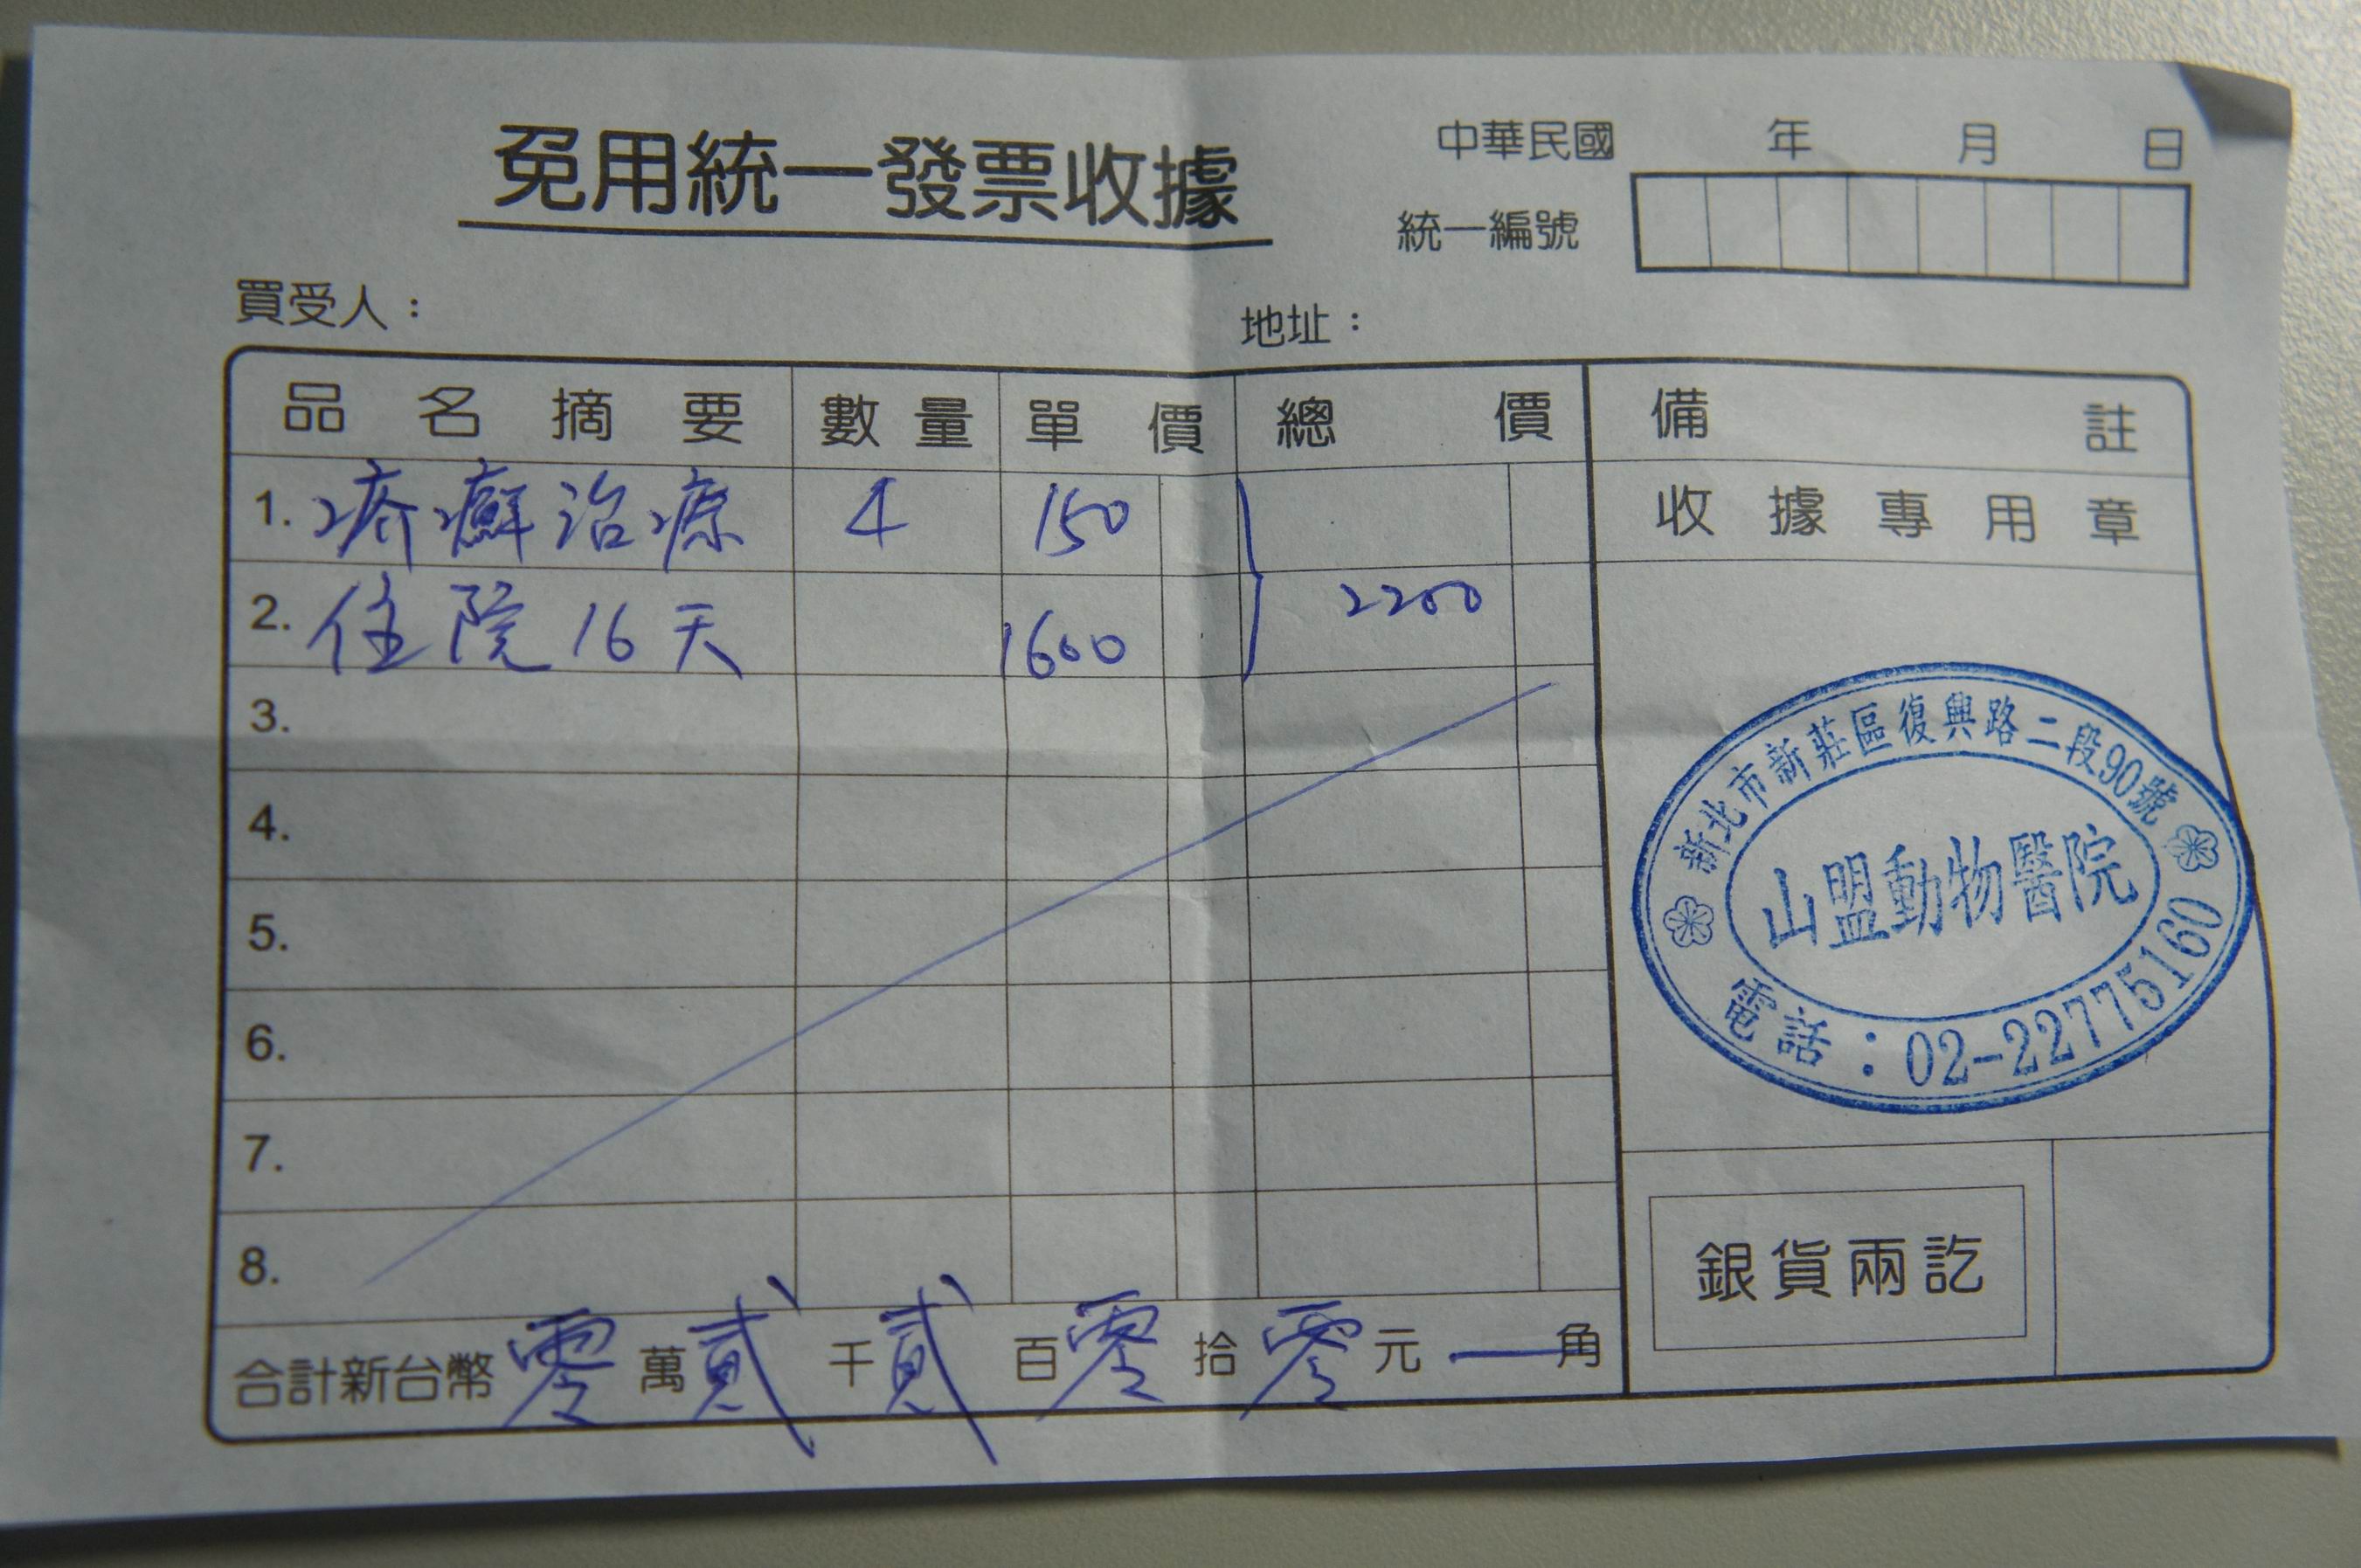 免用統一發票收據
中華民國 年 月 日
統一編號
買受人：
地址：
品名摘要 數量 單價 總價 備註
1. 疥癬治療 4 150
收據專用章
2. 住院16天 1600 2200
3.
4.
5.
6.
7.
8.
新北市新莊區復興路二段90號
山盟動物醫院
電話：02-22775160
銀貨兩訖
合計新台幣零萬貳千貳百零拾零元—角